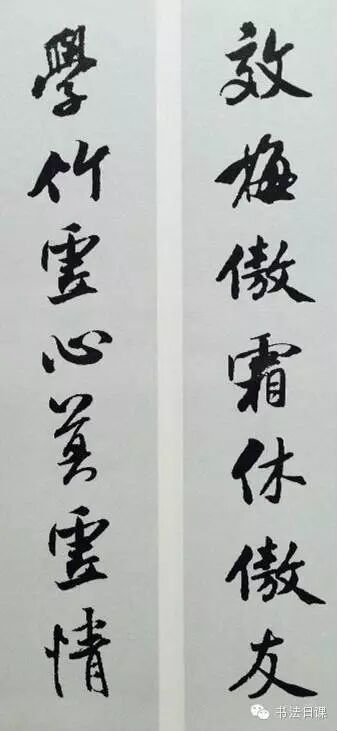 效梅傲霜休傲友
學竹虛心莫虛情
书法日课